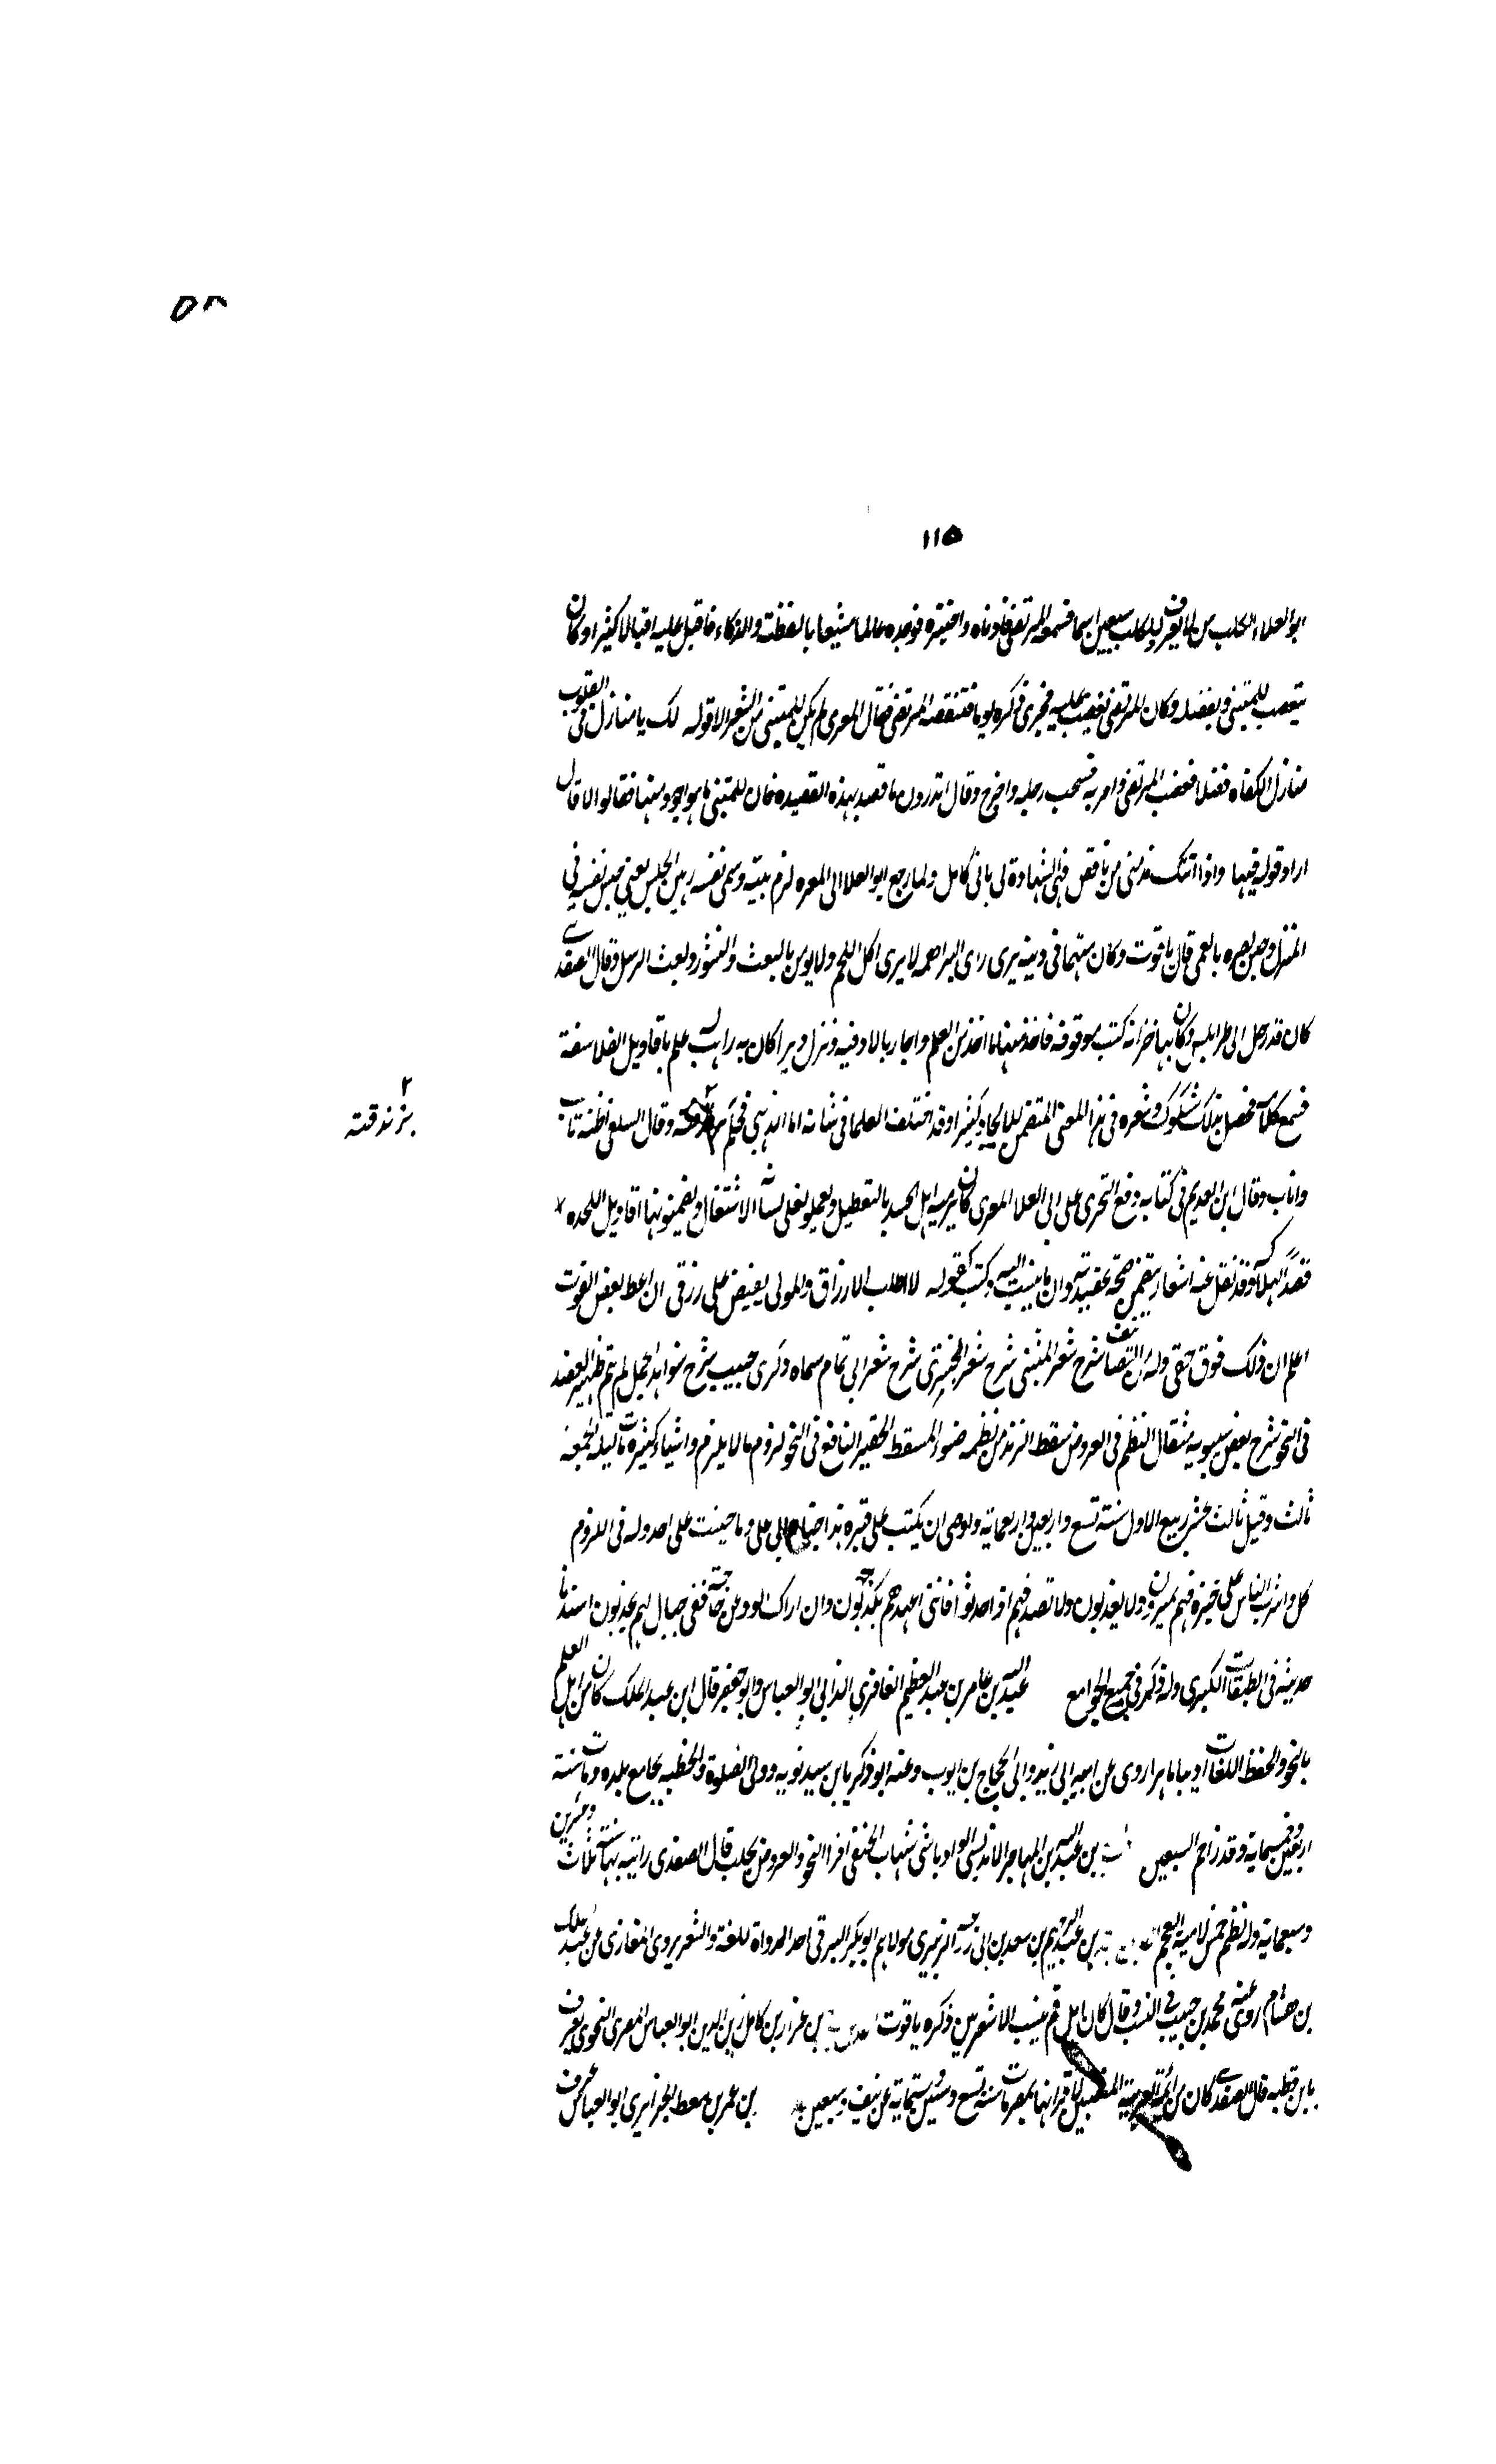 ٥٨
١١٥
ابو العلاء الكلب من لا يعرف للكلب سبعين اسما فسمعه المرتضى فادناه واختبره فوجده عالما مشبعا بالفطنة والذكاء فاقبل عليه اقبالا كثيرا وكان
يتعصب للمتنبي ويفضله وكان المرتضى يتعصب عليه فجرى ذكره يوما فتنقصه المرتضى فقال المعري لو لم يكن للمتنبي من الشعر الا قوله لك يا منازل في القلوب
منازل لكفاه فضلا فغضب المرتضى وامر به فسحب برجله واخرج وقال اتدرون ما قصد بهذه القصيده فان للمتنبي ما هو اجود منها فقالوا لا قال
اراد قوله فيها واذا اتتك مذمتي من ناقص فهي الشهادة لي باني كامل ولما رجع ابو العلا الى المعره لزم بيته وسمى نفسه رهين المحبسين يعني حبس نفسه في
المنزل وحبس بصره بالعمى قال ياقوت وكان متهما في دينه يرى راى البراهمه لا يرى اكل اللحم ولا يومن بالبعث والنشور وبعث الرسل وقال الصفدي
كان قد رحل الى طرابلس وكان بها خزانه كتب موقوفه فاخذ منها ما اخذ من العلم واجتاز باللاذقيه ونزل ديرا كان به راهب له علم باقاويل الفلاسفة
فسمع كلامه فحصل بذلك شكوك وشعره في هذا المعنى المتضمن للالحاد كثير وقد اختلف العلما في شانه اما الذهبي فحكم ٢ وقال السلفي اظنه تاب
٢ بزندقته
واناب وقال ابن العديم في كتابه دفع التجري على ابي العلا المعري كان يرميه اهل الحسد بالتعطيل ويعملون على لسانه الاشعار ويضمنونها اقاويل الملحده
قصدا لهلاكه وقد نقل عنه اشعار تتضمن صحة عقيدته وان ما ينسب اليه كذب كقوله لا اطلب الارزاق والمولى يفيض علي رزقي ان اعط بعض القوت
اعلم ان ذلك فوق حقي وله من التصانيف شرح شعر المتنبي شرح شعر البحتري شرح شعر ابي تمام سماه ذكرى حبيب شرح شواهد الجمل لم يتم ظهير العضد
في النحو شرح بعض سيبويه مثقال النظم في العروض سقط الزند من نظمه ضوء السقط الحقير النافع في النحو لزوم ما لا يلزم واشياء كثيرة مات ليلة الجمعة
ثالث وقيل ثالث عشر ربيع الاول سنة تسع واربعين واربعماية واوصى ان يكتب على قبره هذا جناه ابي علي وما جنيت على احد وله في اللزوم
كل واشرب الناس على خبرة فهم يمرون ولا يعذبون ولا تصدقهم اذا حدثوا فانني اعهدهم يكذبون وان اراك الود عن حاجة ففي حبال لهم يجذبون اسندنا
حديثه في الطبقات الكبرى وله ذكر في جمع الجوامع عبد الله بن عامر بن عبد العظيم الغافري ابو العباس وابو جعفر قال ابن عبد الملك كان من اهل العلم
بالنحو والحفظ للغات اديبا ماهرا روى عن ابيه وابي الحجاج بن ايوب وعنه ابو ذكريا بن سيد نويه وولي الصلوة والخطبه بجامع بلده ومات سنة
اربعين وخمسماية وقد زاحم السبعين بن عبد الله بن المهاجر الاندلسي الوادياشي شهاب الحنفي اقرا النحو والعروض بحلب قال الصفدي رايته بها سنة ثلاث وعشرين
وسبعماية وله نظم خمس لامية العجم بن عبد الرحيم بن سعد بن ابي زرعه الزبيري مولاهم ابو بكر البرقي احد الرواة للغة والشعر يروي المغازي عن عبد الملك
بن هشام روى عنه محمد بن حبيب في النسب وقال كان اهل قم ينسب الاشعريين ذكره ياقوت بن عزاز بن كامل زين الدين ابو العباس المصري النحوي يعرف
بابن قطبه قال الصفدي كان من ائمة العربية المنتصبين لاقرائها بمصر مات سنة تسع وستين وستماية عن نيف وسبعين سنه بن عمر بن معط الجزايري ابو العباس عرف